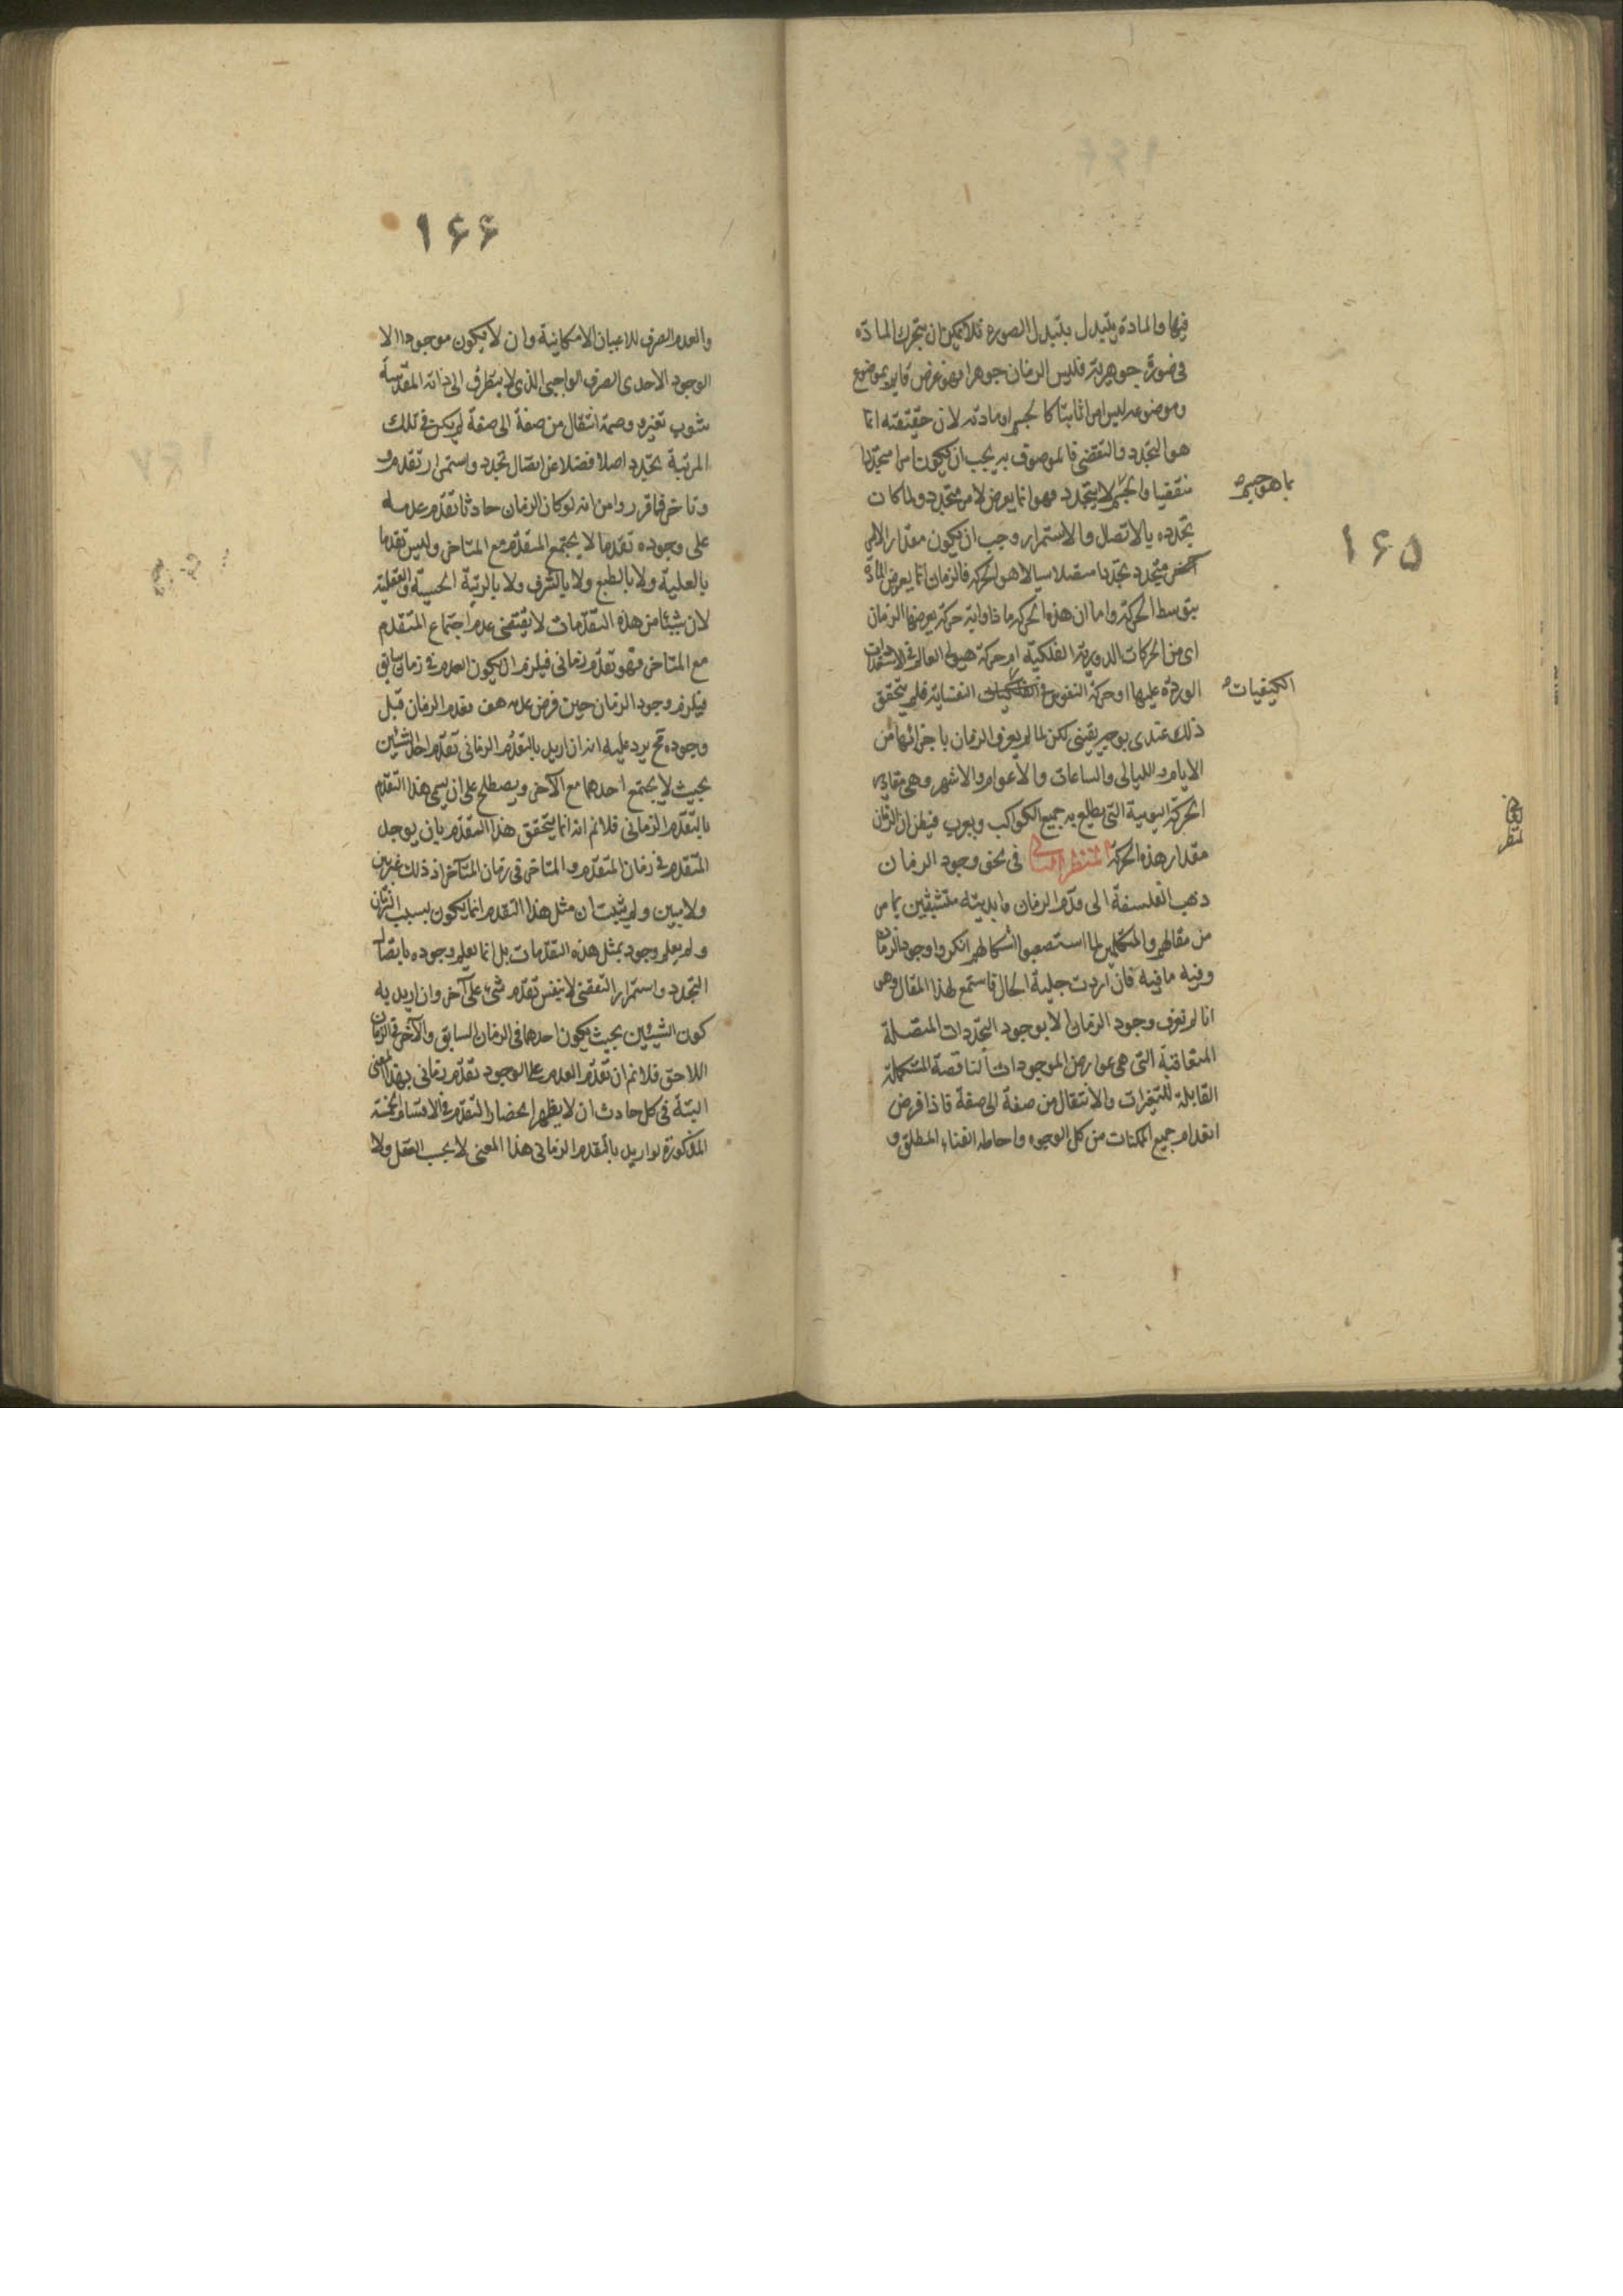 فيها والمادة يتبدل بتبدل الصورة فلا يمكن ان يتحرك المادة
فى صورة جوهرية فليس الزمان جوهرا فهو عرض قايم بموضوع
وموضوعه ليس امرا ثابتا كالجسم او مادته لان حقيقته انما
هو التجدد والتقضى فالموصوف به يجب ان يكون امرا متجددا
متقضيا والجسم لا يتجدد فهو انما يعرض لامر متجدد ولما كان
بما هو جسم
تجدده بالاتصال والاستمرار وجب ان يكون مقدارا لامر
۱۶۵
متجدد تجددا متصلا سيالا هو الحركة فالزمان انما يعرض المادة
بتوسط الحركة واما ان هذه الحركة ماذا واية حركة يعرضها الزمان
اى من الحركات الدورية الفلكية ام حركة هيولى العالم فى الاستعدادات
الواردة عليها او حركة النفوس فى النفسانية فلم يتحقق
الكيفيات
ذلك عندى بوجه يقينى لكن لما لم يعرف الزمان باجزائها من
الايام والليالى والساعات والاعوام والاشهر وهى مقادير
الحركة اليومية التى يطلع به جميع الكواكب ويغرب فيظن ان الزمان
مقدار هذه الحركة المنظر الثانى فى نحو وجود الزمان
ذهب الفلسفة الى قدم الزمان وابديته متشبثين بما مر
من مقالهم والمتكلمين لما استصعبوا اشكالهم انكروا وجود الزمان
وفيه ما فيه فان اردت جلية الحال فاستمع لهذا المقال وهى
انا لم نعرف وجود الزمان الا بوجود التجددات المتصلة
المتعاقبة التى هى عوارض الموجودات الناقصة المستكملة
القابلة للتغيرات والانتقال من صفة الى صفة فاذا فرض
انعدام جميع الممكنات من كل الوجوه واحاطه الفناء المطلق و
۱۶۶
والعدم الصرف للاعيان الامكانية وان لا يكون موجودا الا
الوجود الاحدى الصرف الواجبى الذى لا يتطرق الى ذاته المقدسة
شوب تغير ووصمة انتقال من صفة الى صفة لم يكن فى تلك
المرتبة تجدد اصلا فضلا عن اتصال تجدد واستمرار تقدم
وتاخر فما قرروا من انه لو كان الزمان حادثا تقدم عدمه
على وجوده تقدما لا يجتمع المتقدم مع المتاخر وليس تقدما
بالعلية ولا بالطبع ولا بالشرف ولا بالرتبة الحسية والعقلية
لان شيئا من هذه التقدمات لا يقتضى عدم اجتماع المتقدم
مع المتاخر فهو تقدم زمانى فيلزم ان يكون العدم فى زمان سابق
فيلزم وجود الزمان حين فرض عدمه هف فقدم الزمان قبل
وجوده فح يرد عليه انه ان اريد بالتقدم الزمانى تقدم احد الشيئين
بحيث لا يجتمع احدهما مع الآخر ويصطلح على ان يسمى هذا التقدم
بالتقدم الزمانى فلانم انه انما يتحقق هذا التقدم بان يوجد
المتقدم فى زمان المتقدم والمتاخر فى زمان المتاخر اذ ذلك غير بين
ولا مبين ولم يثبت ان مثل هذا التقدم انما يكون بسبب الزمان
ولم يعلم وجود بمثل هذه التقدمات بل انما يعلم وجوده باتصال
التجدد واستمرار التقضى لا بنفس تقدم شىء على آخر وان اريد به
كون الشيئين بحيث يكون احدهما فى الزمان السابق والآخر فى الزمان
اللاحق فلانم ان تقدم العدم على الوجود تقدم زمانى بهذا المعنى
البتة فى كل حادث ان لا يظهر انحصار التقدم فى الاقسام الخمسة
المذكورة لو اريد بالتقدم الزمانى هذا المعنى لا بحسب العقل ولا